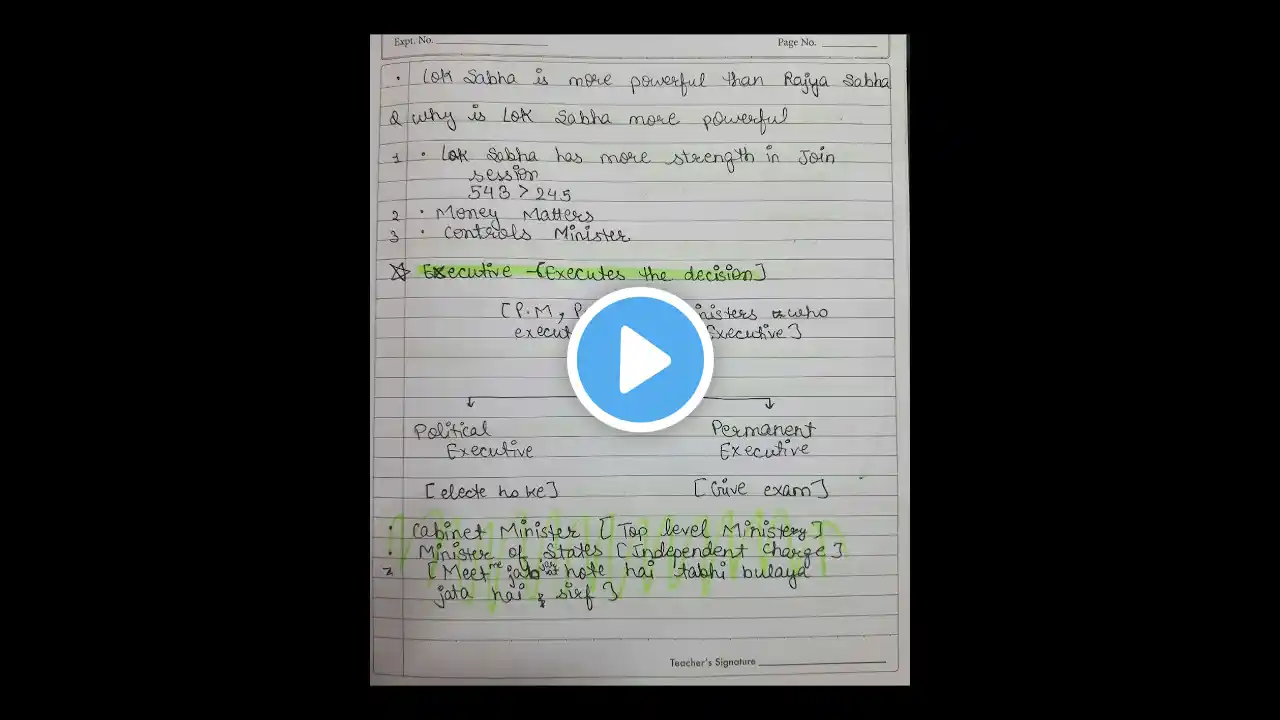 Expt. No. Page No.
· Lok Sabha is more powerful than Rajya Sabha
Q why is Lok Sabha more powerful
1 · Lok Sabha has more strength in Join
session
543 > 245
2 · Money Matters
3 · Controls Minister
☆ Executive - [Executes the decision]
[P.M, who
Executive]
Political Permanent
Executive Executive
[elect ho ke] [Give exam]
· Cabinet Minister [Top level Ministery]
· Minister of States [Independent Charge]
[Meet me hote hai tabhi bulaya
jata hai sirf]
Teacher's Signature